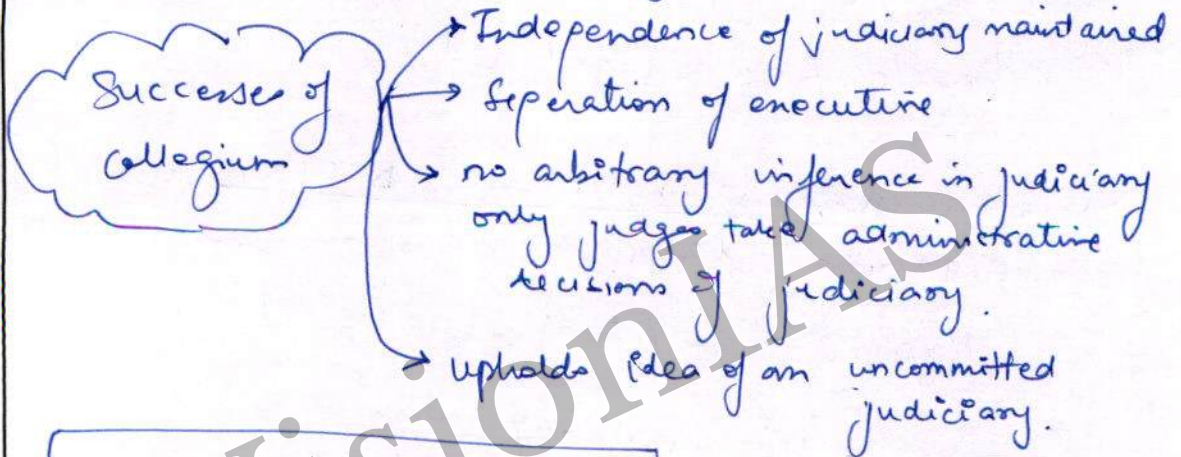 Successes of
collegium
Independence of judiciary maintained
Seperation of executive
no arbitrary inference in judiciary
only judges take administrative
decisions of judiciary.
upholds idea of an uncommitted
judiciary.
VisionIAS